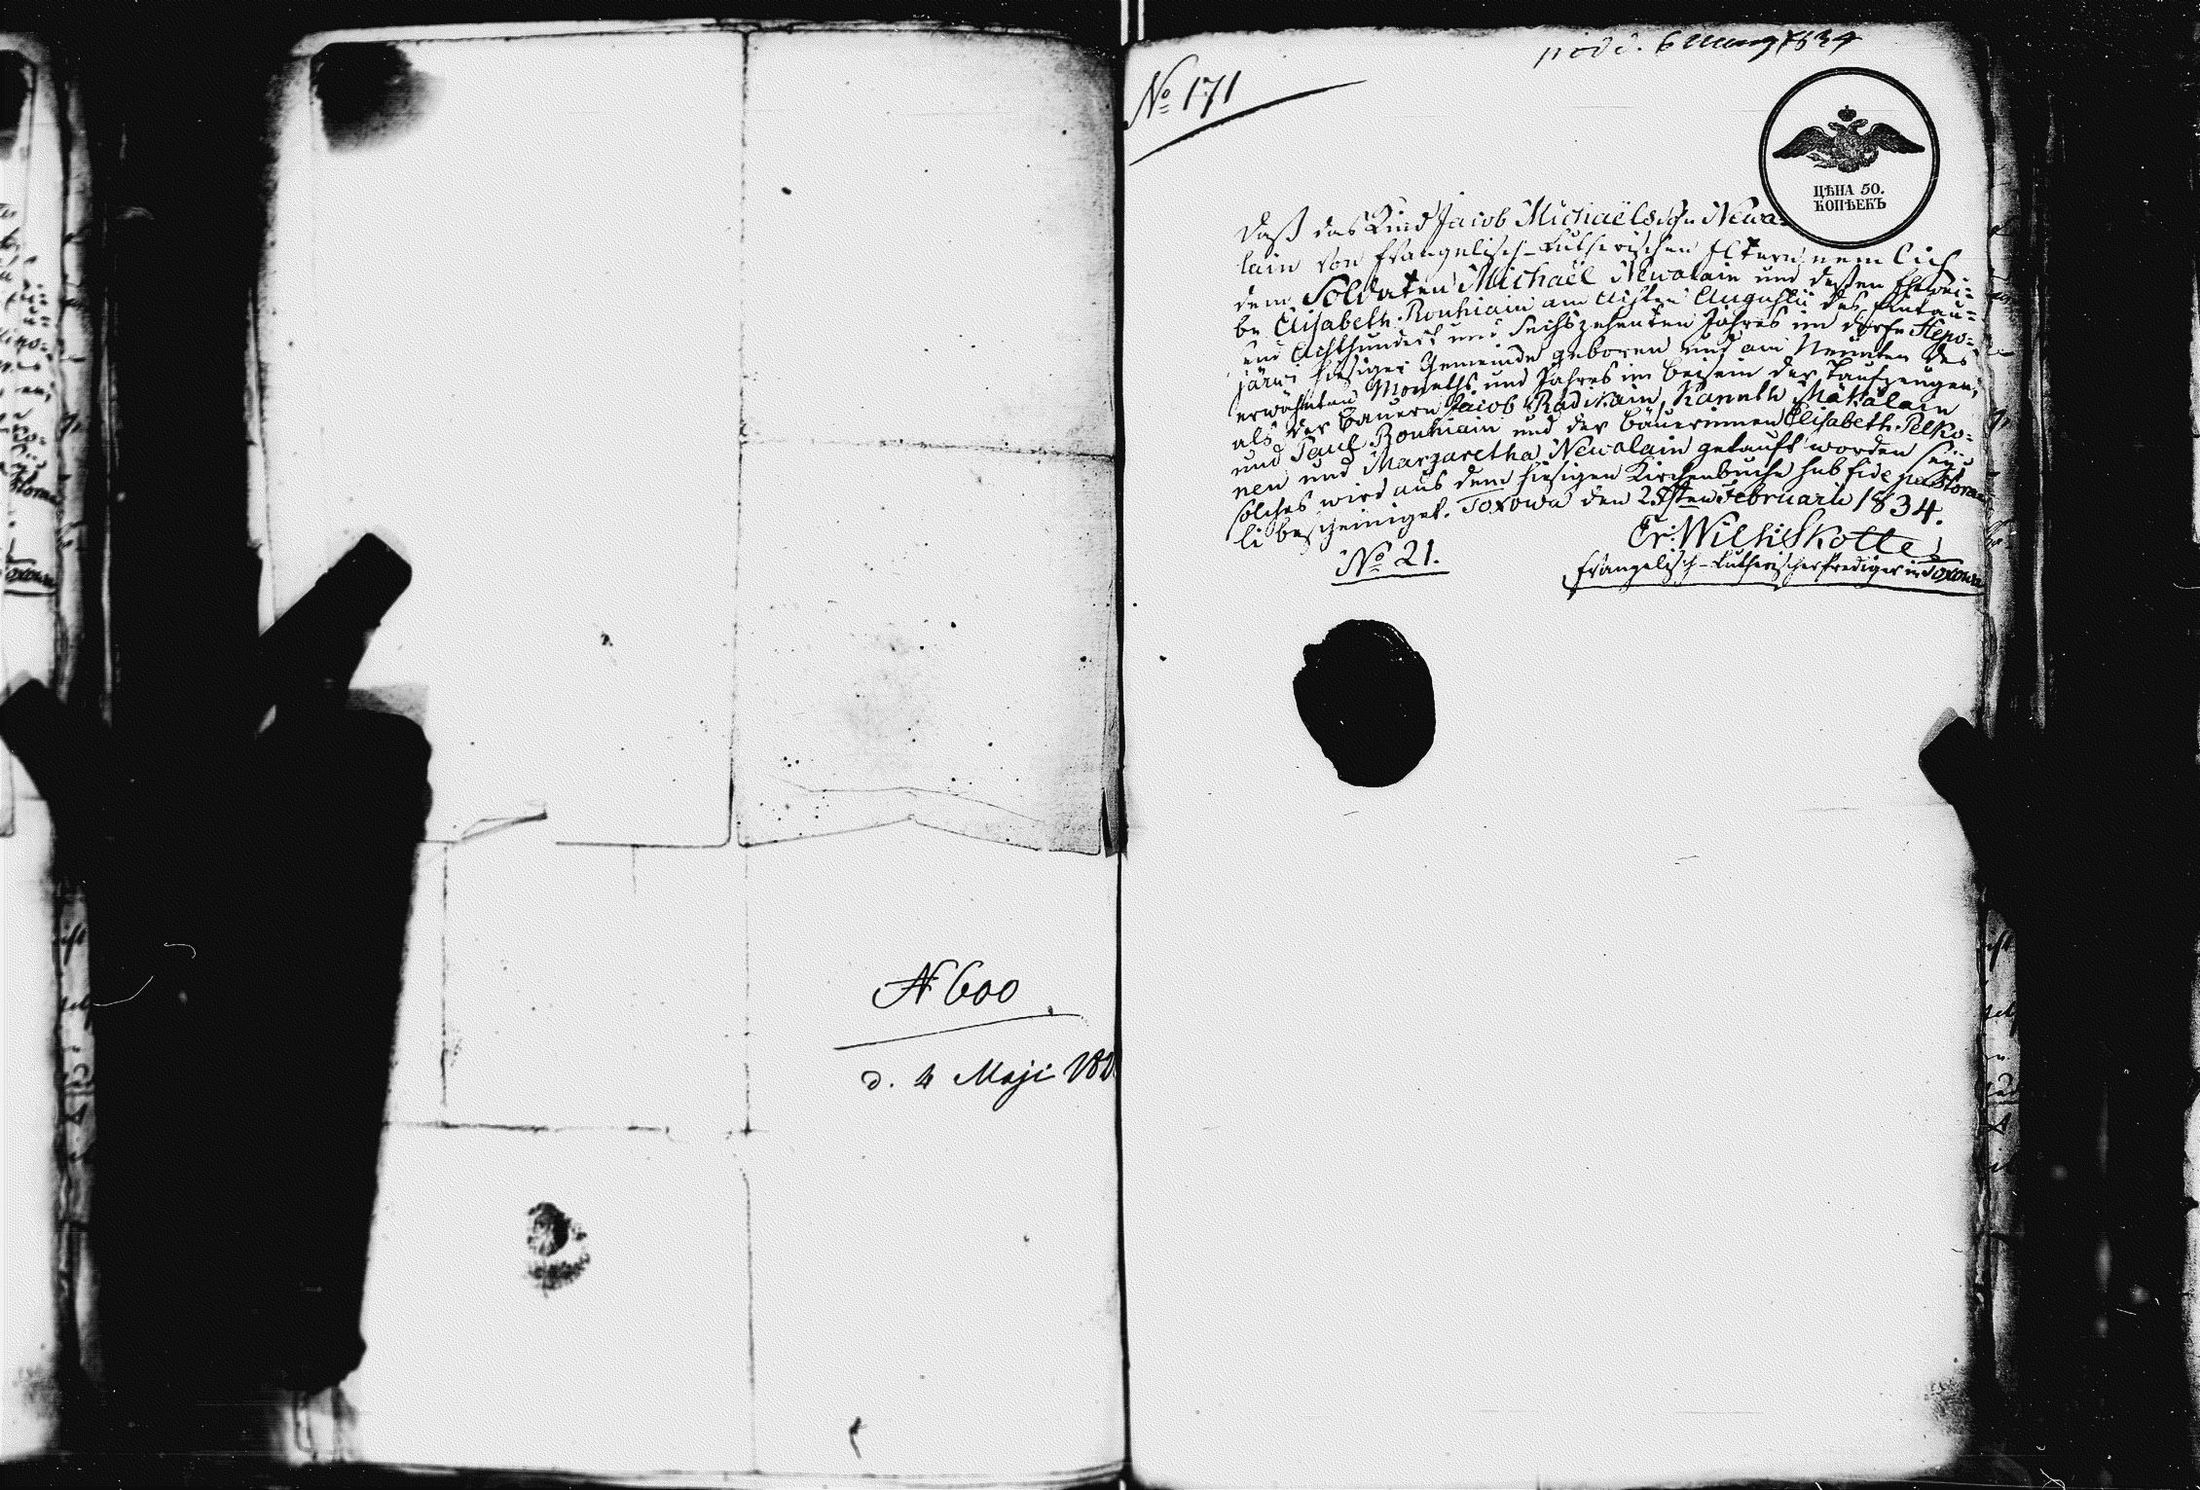 N 600
d. 4 Maji 181
prod d. 6 1834
No 171
ЦѢНА 50.
КОПѢЕКЪ
Daß das Kind Jacob Michaëlssohn Newa=
lain von Evangelisch-Lutherischen Eltern, nemlich
dem Soldaten Michaël Newalain und deßen Ehewei=
be Elisabeth Rouhiain am Augustii des Eintau=
send Achthundert und Sechszehenten Jahres im Dorfe Hepo=
järwi hiesiger Gemeinde geboren und am Neunten des
erwähnten Monaths und Jahres im Beisein der Taufzeugen,
als der Bauern Jacob Radikain, Makälain
und Paul Rouhiain und der Bäuerinnen Elisabeth Pelko=
nen und Margaretha Newalain getauft worden sey:
solches wird aus dem hiesigen Kirchenbuche sub fide pastora=
li bescheiniget. Toxowa den 25sten Februarii 1834.
No 21.
Er: Wilh: Skotte,
Evangelisch-Lutherischer Prediger in Toxowa